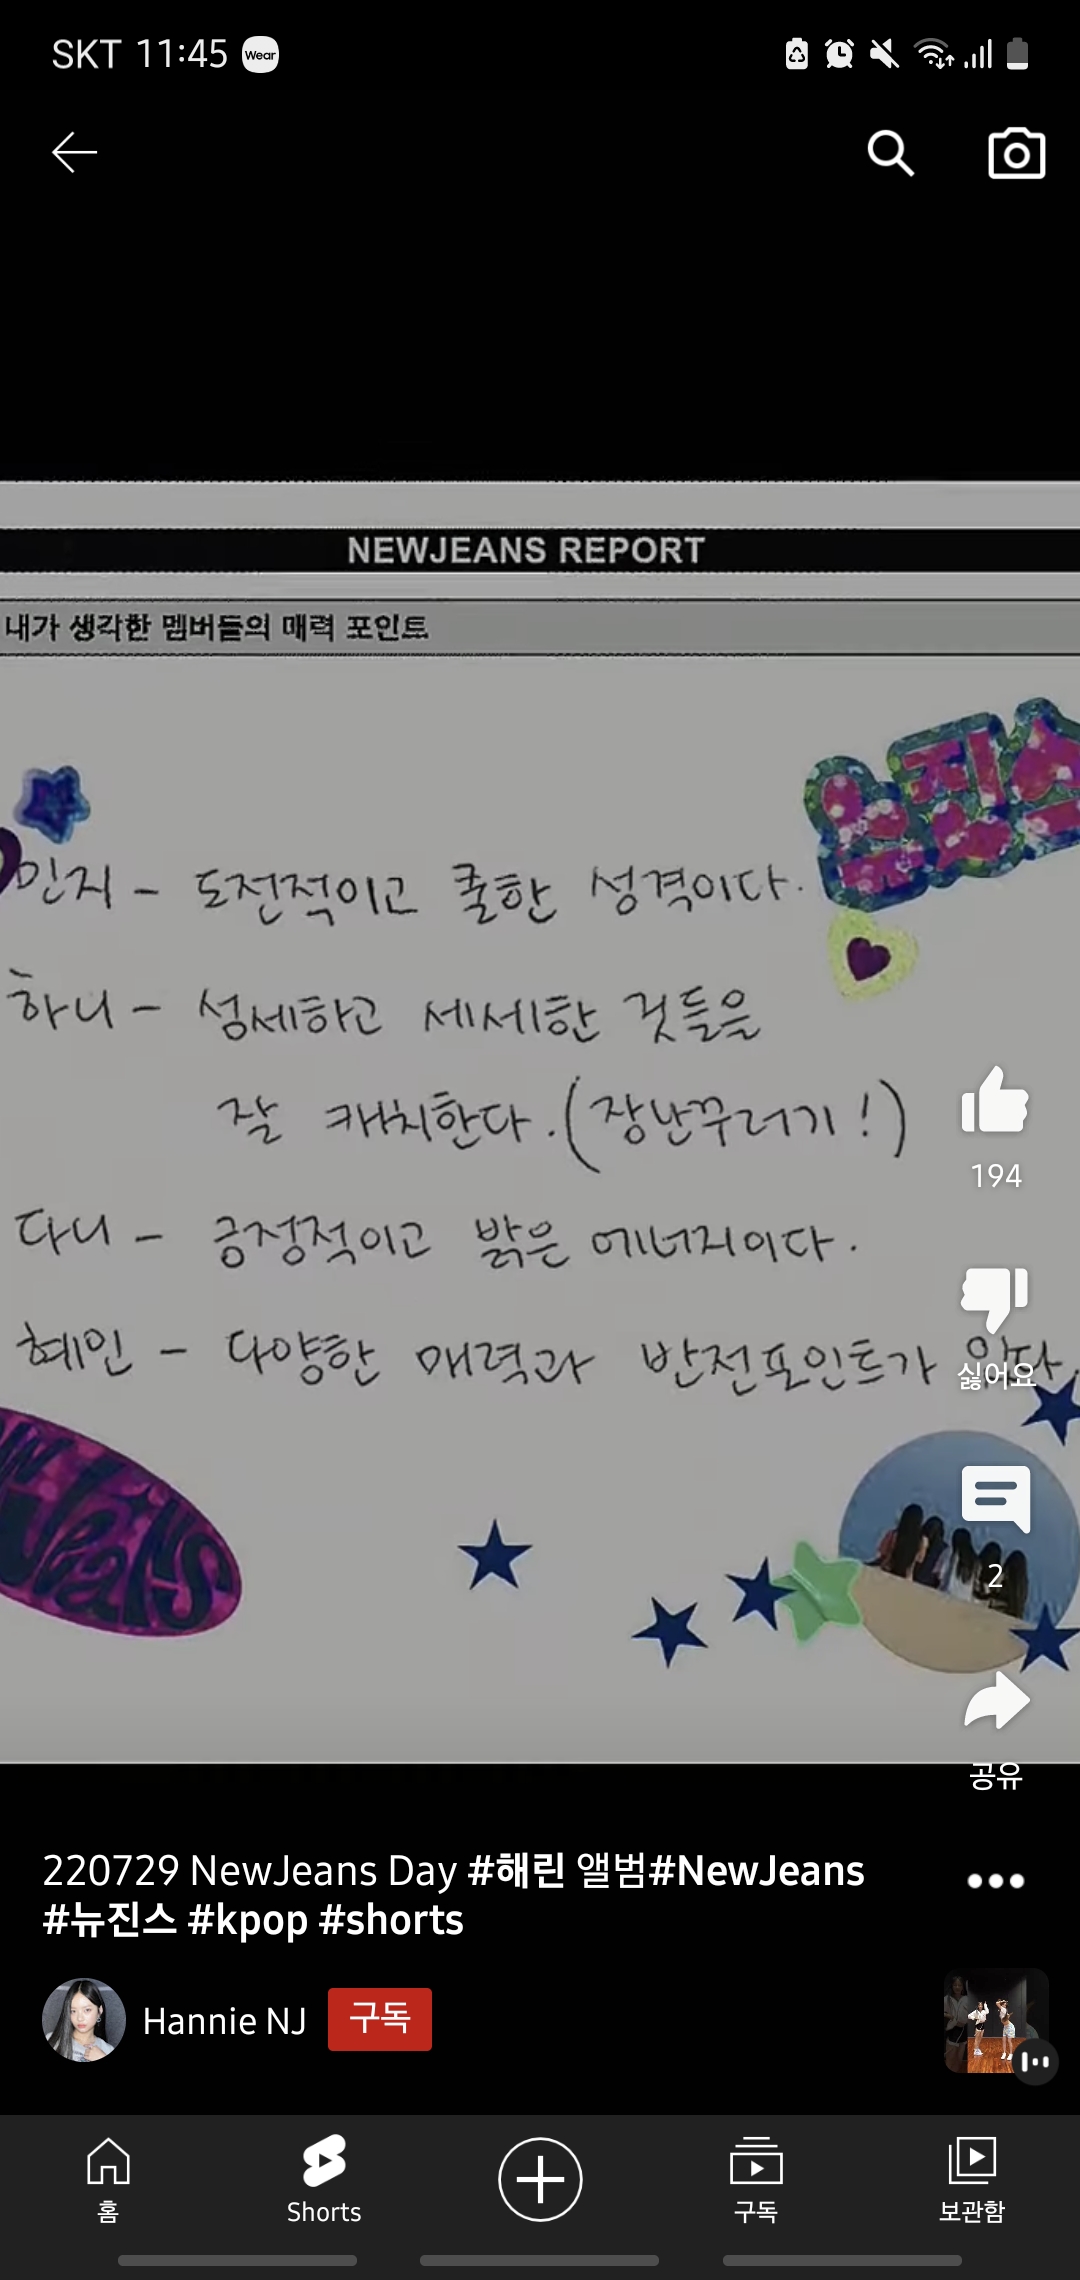 SKT 11:45 Wear
NEWJEANS REPORT
내가 생각한 멤버들의 매력 포인트
뉴진스
민지 - 도전적이고 쿨한 성격이다.
하니 - 섬세하고 세세한 것들을
잘 캐치한다. (장난꾸러기!)
194
다니 - 긍정적이고 밝은 에너지이다.
혜인 - 다양한 매력과 반전포인트가 있다.
싫어요
NewJeans
2
공유
220729 NewJeans Day #해린 앨범#NewJeans
#뉴진스 #kpop #shorts
Hannie NJ 구독
홈 Shorts 구독 보관함